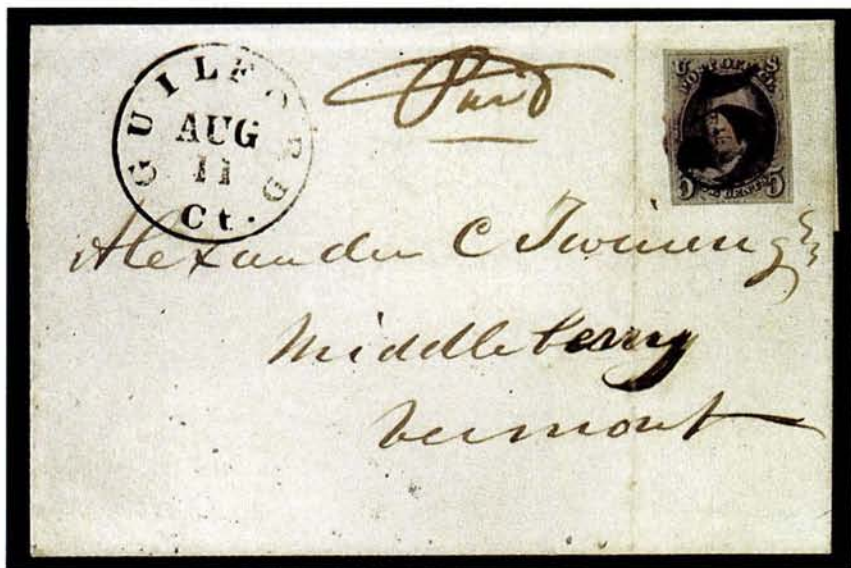 GUILFORD
AUG
11
Ct.
Paid
U S
POST OFFICE
5 5
Alexander C Twining
Middlebury
Vermont